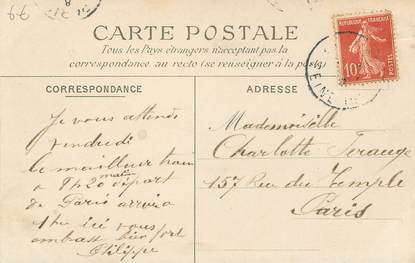 CARTE POSTALE
Tous les Pays étrangers n'acceptant pas la
correspondance au recto (se renseigner à la poste)
REPUBLIQUE FRANÇAISE
10c
POSTES
CORRESPONDANCE
ADRESSE
Je vous attends
vendredi
le meilleur train
matin
a 8h20 départ
de Paris arrivée
1h ici vous
embrasse bien fort
Philippe
Mademoiselle
Charlotte
157 Rue du Temple
Paris